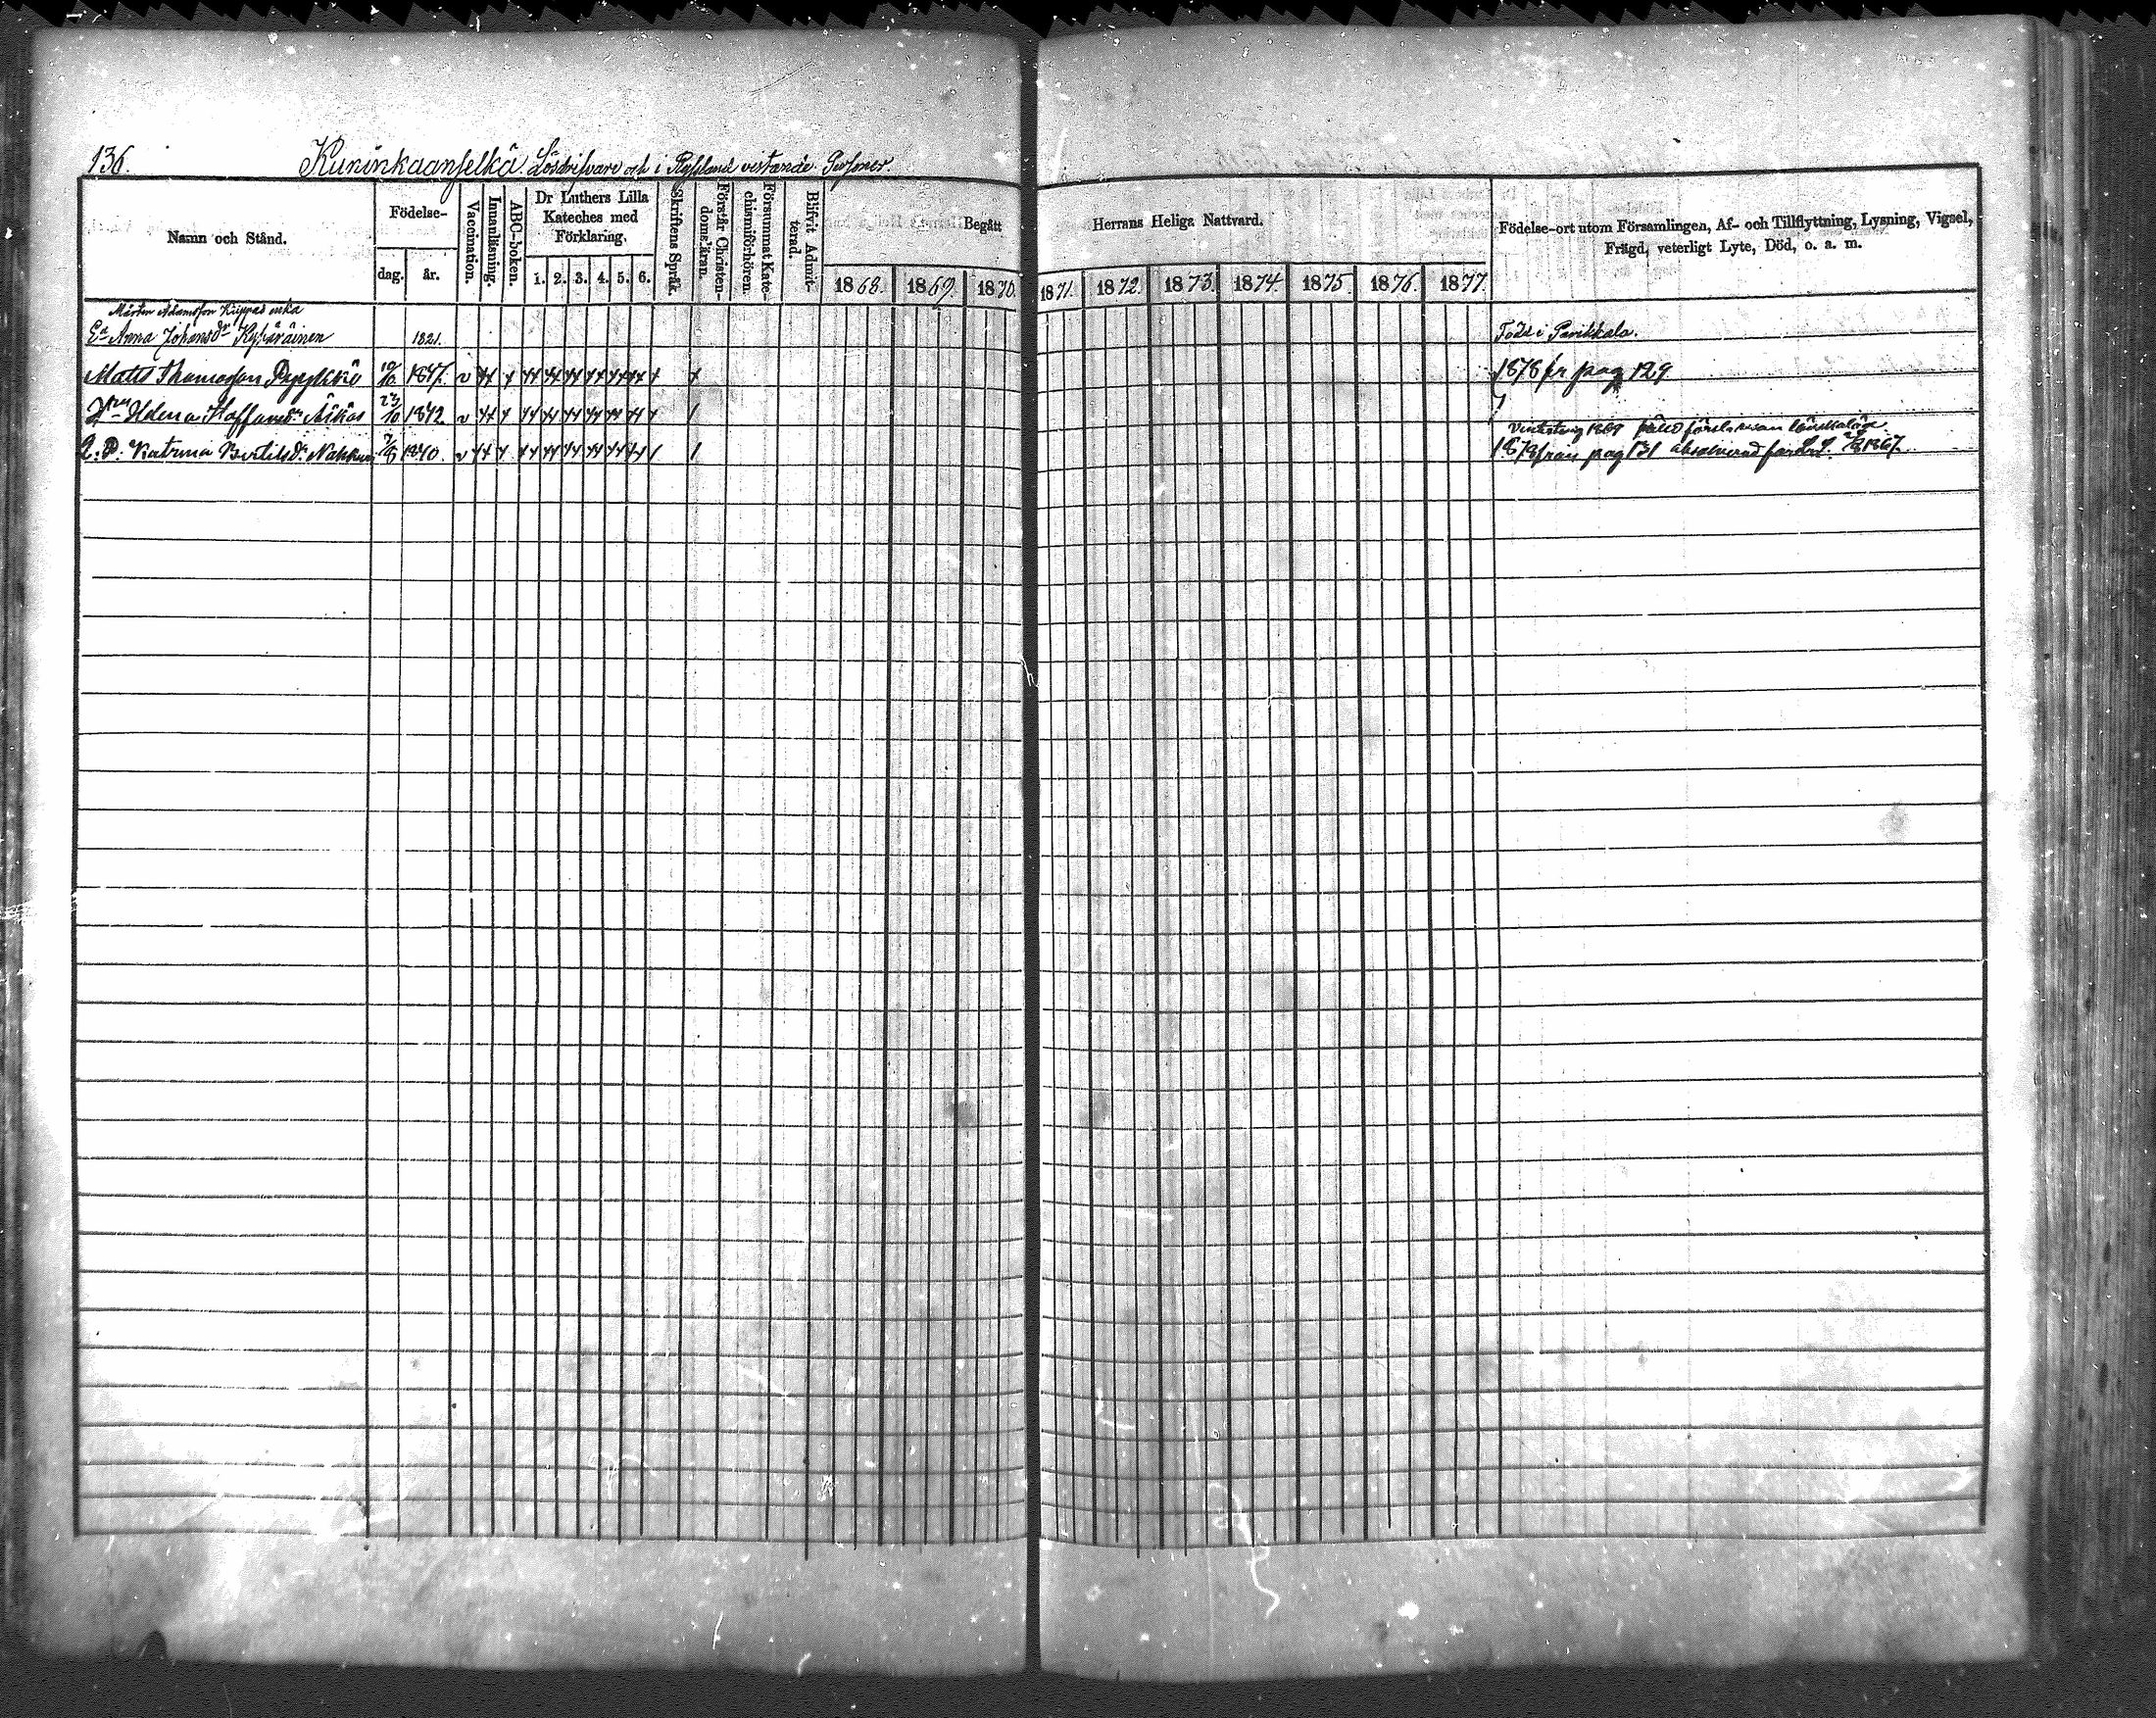 136. Kuninkaanselkä. Lösdrifvare och i Ryssland vistande Personer.
Namn och Stånd.
Födelse-
dag.
år.
Vaccination.
Innanläsning.
ABC-boken.
Dr Luthers Lilla
Kateches med
Förklaring.
1. 2. 3. 4. 5. 6.
Skriftens Språk.
Förstår Christen-
doms'läran.
Försummat Kate-
chismiförhören.
Blifvit Admit-
terad.
Begått
Herrans Heliga Nattvard.
1868. 1869. 1870. 1871. 1872. 1873. 1874. 1875. 1876. 1877.
Födelse-ort utom Församlingen, Af- och Tillflyttning, Lysning, Vigsel,
Frägd, veterligt Lyte, Död, o. a. m.
Mårten Adamsson Kuppas enka
Ea Anna Johansdr 1821. Född i Parikkala.
Matts Thomasson 1847. v 1878 fr pag 129
Helena Staffansdr 23/10 1842. v
1869
Q. P. Katrina Bertilsdr 1840. v 1878 från pag 131 1867.